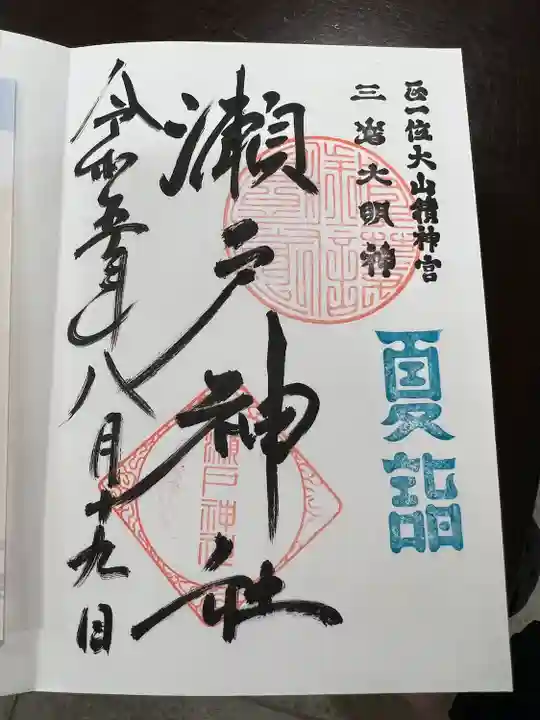 正一位大山積神宮
三嶌大明神
夏詣
瀬戸神社
瀬戸神社
令和五年八月十九日